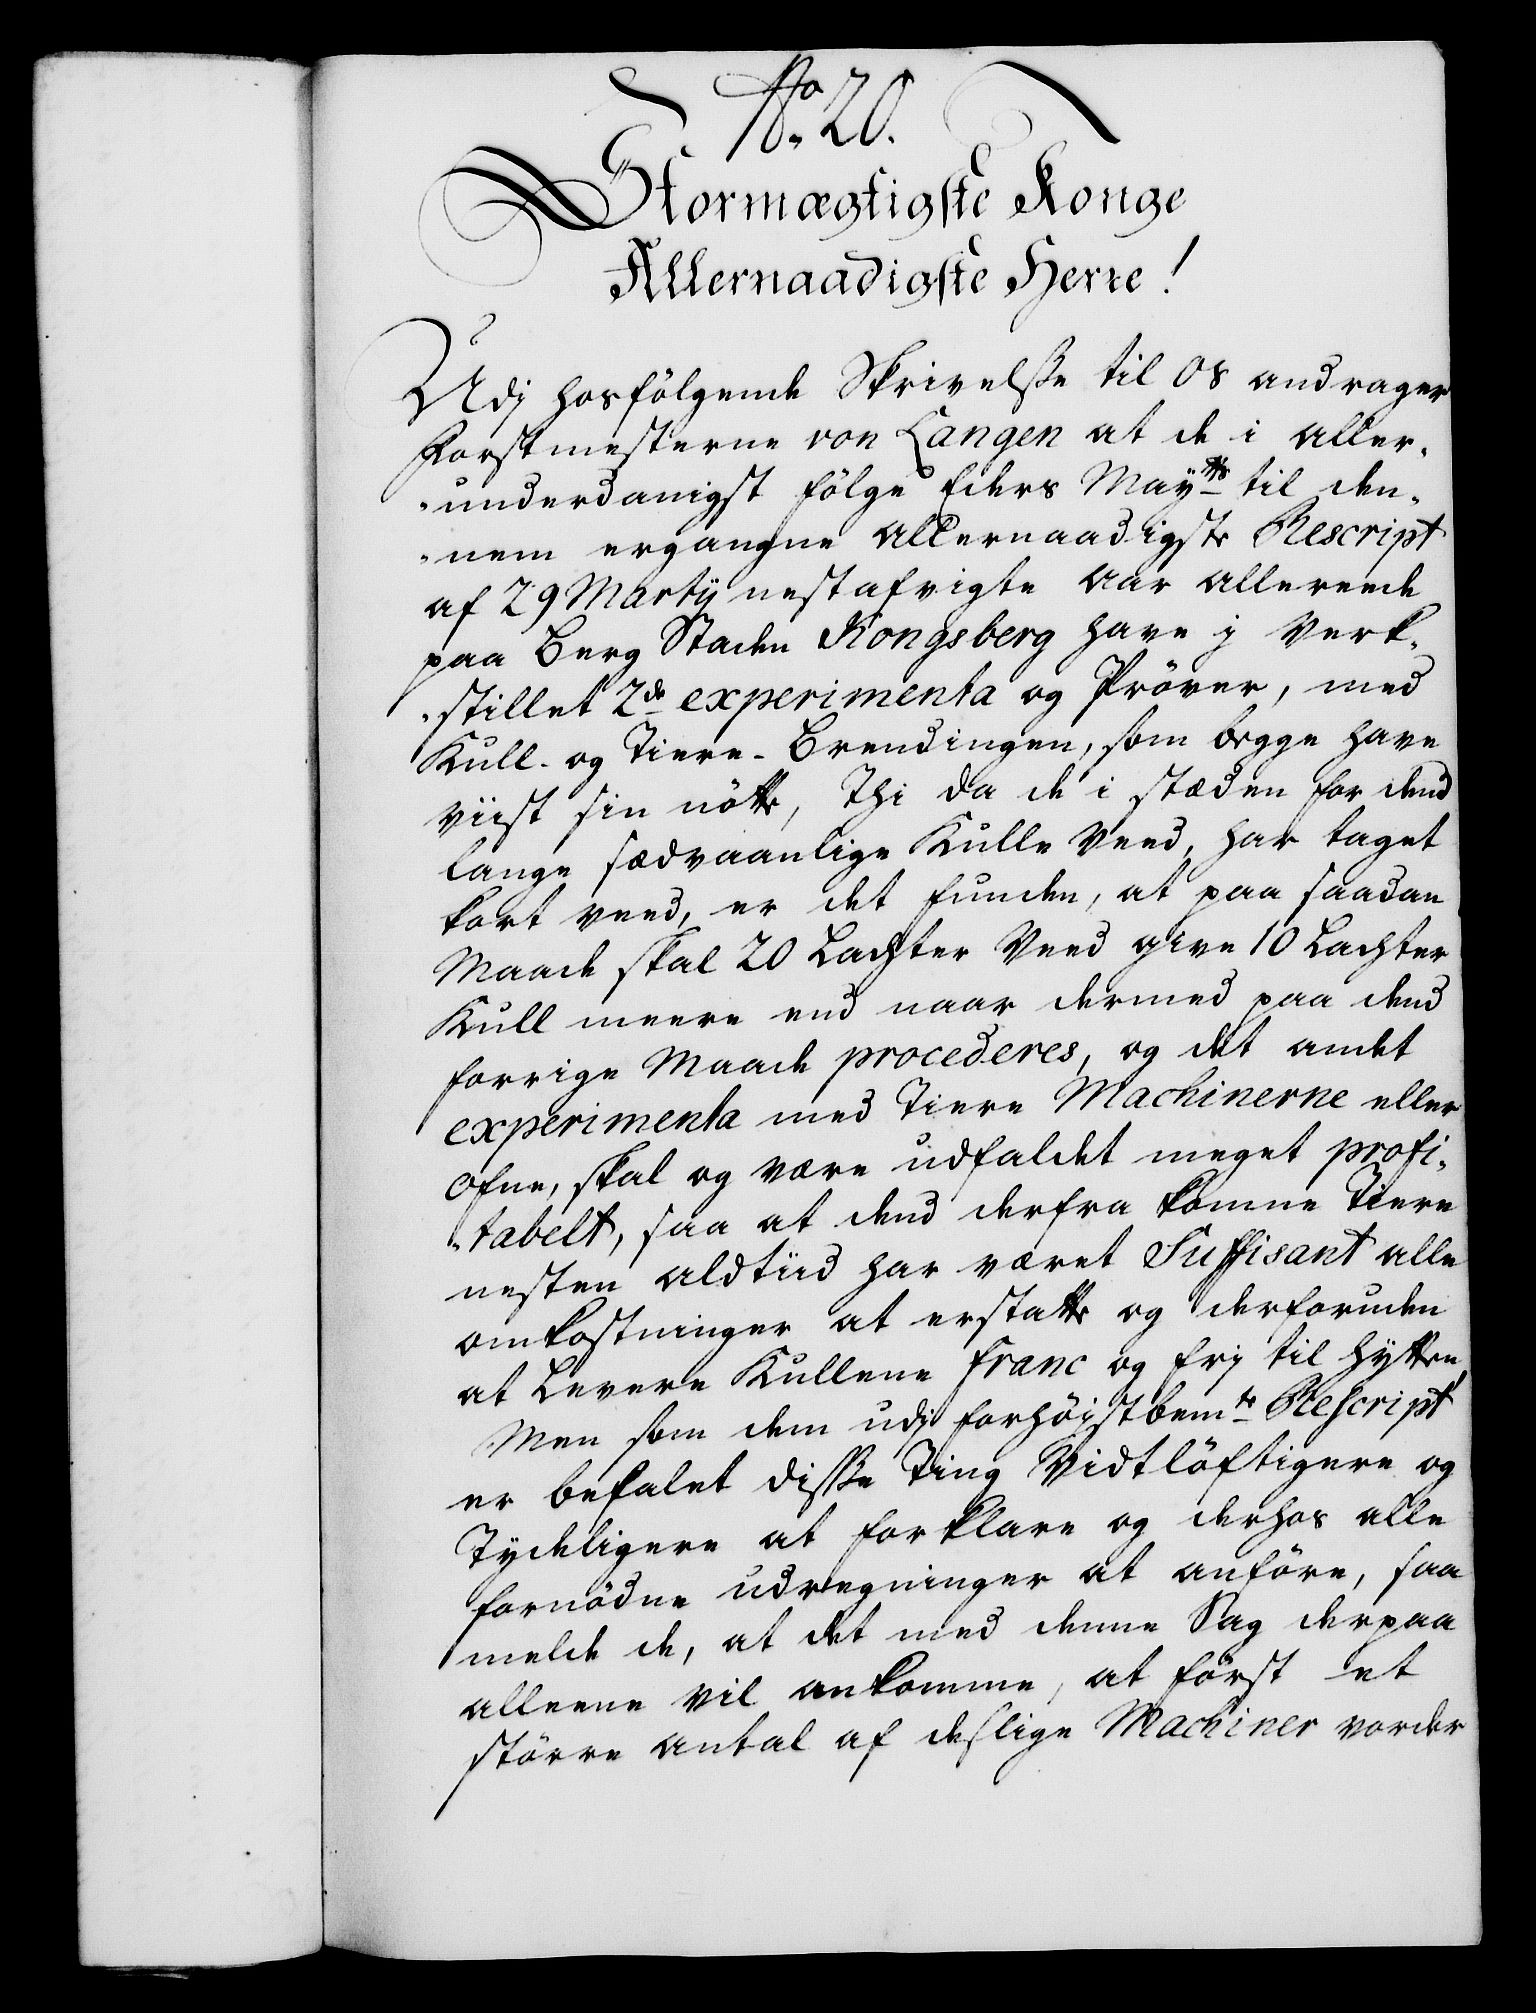 No. 20.
Stormægtigste Konge
Allernaadigste Herre!
Udj hosfölgende Skrivelße til Os andrager
Forstmesterne von Langen at de i aller¬
¬underdanigst fölge Eders Mayts til den¬
¬nem ergangne Allernaadigste Rescript
af 29 Martij nestafvigte Aar allereede
paa Berg Staden Kongsberg have j Verk¬
¬stillet 2de experimenta og Pröver, med
Kull- og Tiere-Brendingen, som begge have
viist sin nötte, Thi da de i stæden for dend
lange sædvaanlige Kulle Veed, har taget
kort veed, er det funden, at paa saadan
Maade skal 20 Lachter Veed give 10 Lachter
Kull meere end naar dermed paa dend
forrige Maade procederes, og det andet
experimenta med Tiere Machinerne eller
Ofne, skal og være udfaldet meget profi¬
¬tabelt, saa at dend derfra komne Tiere
nesten aldtiid har været Suffisant alle
omkostninger at erstatte og derforuden
at Levere Kullene franc og frj til Hytten,
Men som dem udj forhöistbemte Rescript
er befalet disse Ting Vidtlöftigere og
Tydeligere at forklare og derhos alle
fornödne udregninger at anföre, saa
melde de, at det med denne Sag derpaa
alleene vil ankomme, at först et
större antal af deslige Machiner vorder